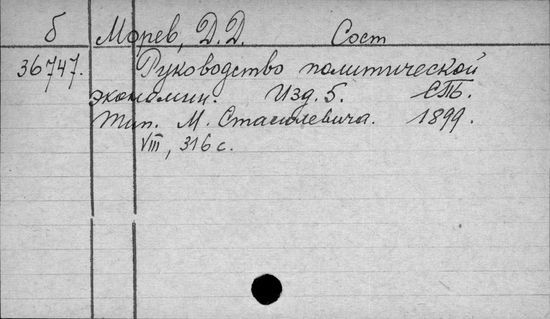 б Морев, Д.Д. Сост
36747. Руководство политической
экономии. Изд. 5. СПб.
Тип. М. Стасюлевича. 1899.
VIII, 316 с.